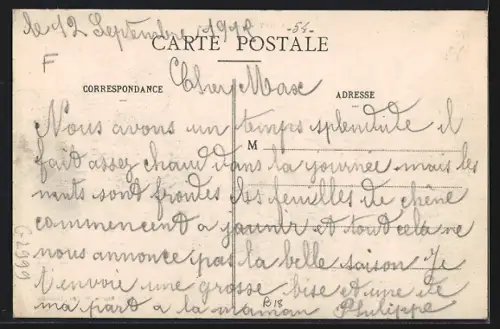 le 12 Septembre 1918
-54-
CARTE POSTALE
F
CORRESPONDANCE
ADRESSE
Cher Max
M
Nous avons un temps splendide il
fait assez chaud dans la journée mais les
nuits sont froides les feuilles de chêne
commencent a jaunir et tout cela ne
nous annonce pas la belle saison Je
t'envoie une grosse bise et une de
ma part a la maman Philippe
R18
G2999